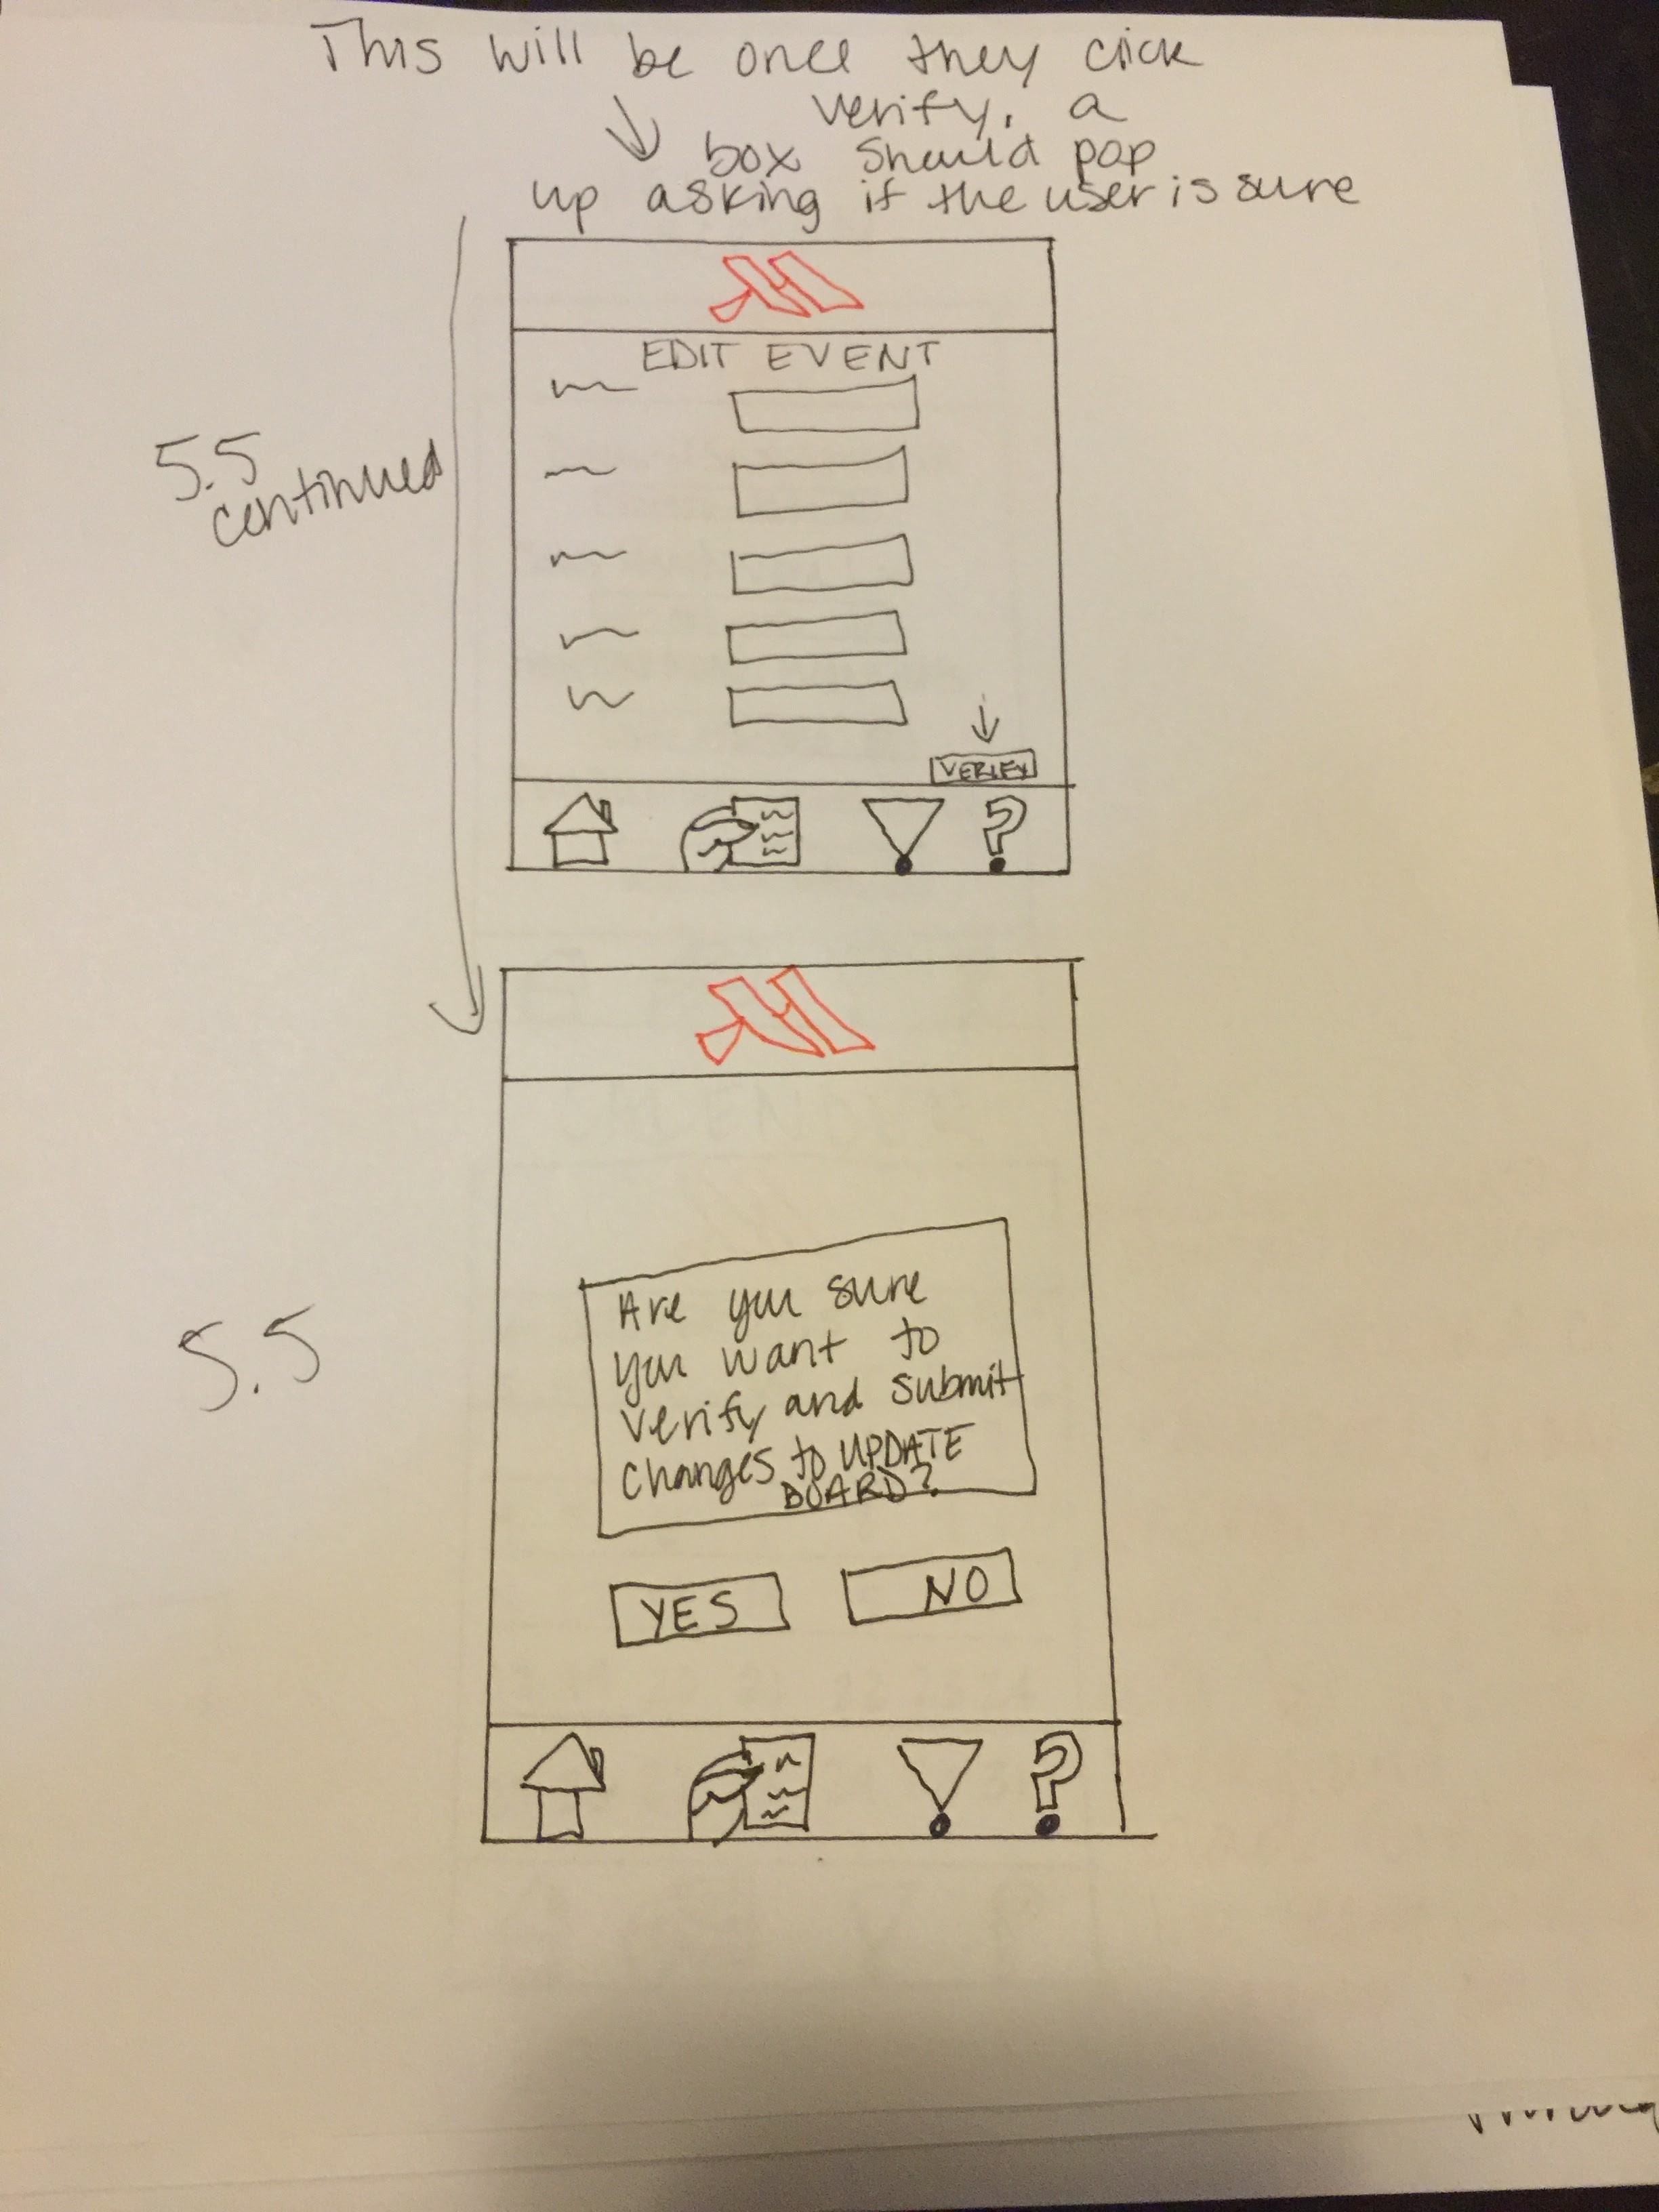 This will be once they click
verify, a
box should pop
up asking if the user is sure
EDIT EVENT
5.5
continued
VERIFY
Are you sure
you want to
verify and submit
changes to UPDATE
BOARD?
5.5
YES
NO